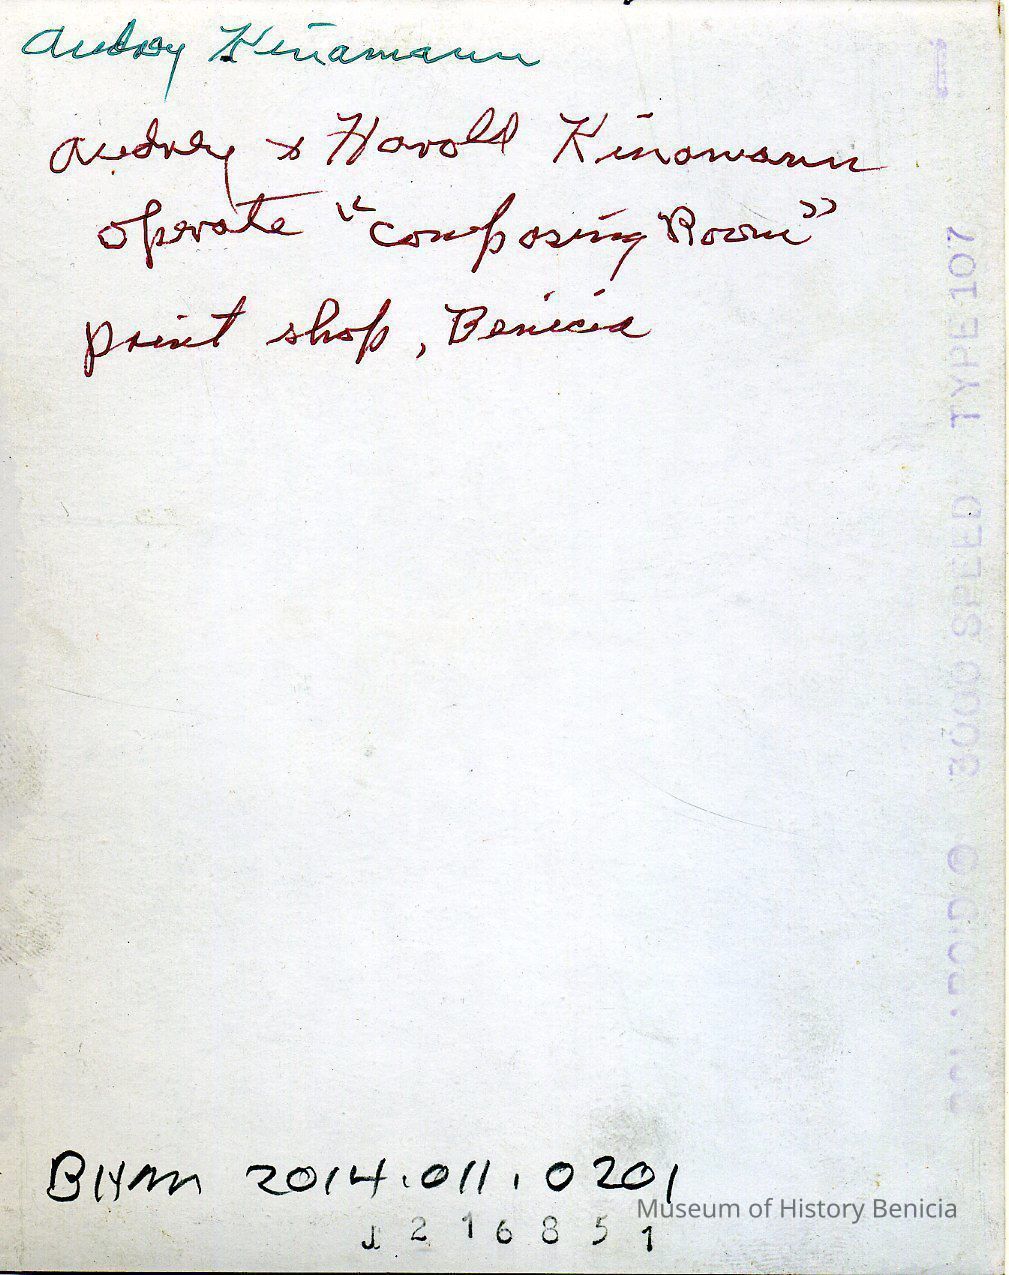 Audrey Kinamann
Audrey & Harold Kinamann
operate "Composing Room"
print shop, Benicia
POLAROID® 3000 SPEED TYPE 107
BHM 2014.011.0201
Museum of History Benicia
J216851